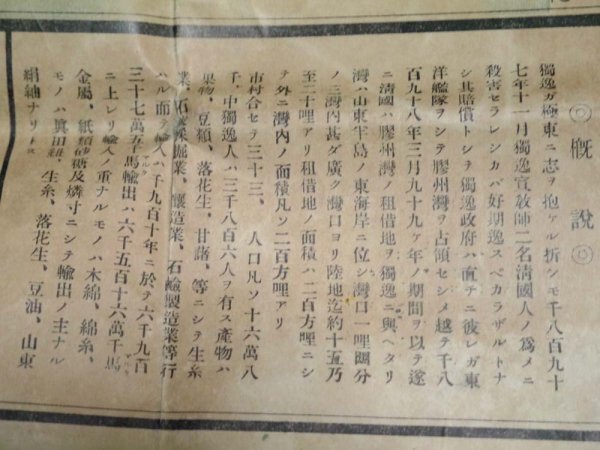 ◎概説◎
獨逸ガ極東ニ志ヲ抱ケル折シモ千八百九十
七年十一月獨逸宣敎師二名淸國人ノ爲メニ
殺害セラレシカバ好期逸スベカラザルトナ
シ其賠償トシテ獨逸政府ハ直チニ彼レガ東
洋艦隊ヲシテ膠州灣ヲ占領セシメ越テ千八
百九十八年三月九十九ケ年ノ期間ヲ以テ遂
ニ淸國ハ膠州灣ノ租借地ヲ獨逸ニ與ヘタリ
灣ハ山東半島ノ東海岸ニ位シ灣口一哩
ノ三灣內甚ダ廣ク灣口ヨリ陸地迄約十五乃
至二十哩アリ租借地ノ面積ハ二百方哩ニシ
テ外ニ灣內ノ面積凡ソ二百方哩アリ
市村合セテ三十三、人口凡ソ十六萬八
千、中獨逸人ハ三千八百六人ヲ有ス產物ハ
果物、豆類、落花生、甘藷、等ニシテ生糸
業、石炭採掘業、釀造業、石鹼製造業等行
ハル而テ輸入ハ千九百十年ニ於テ六千九百
三十七萬五千馬輸出ハ六千五百十六萬千馬
ニ上レリ輸入ノ重ナルモノハ木綿、綿糸、
金屬、紙類砂糖及燐寸ニシテ輸出ノ主ナル
モノハ眞田 生糸、落花生、豆油、山東
絹紬ナリトス